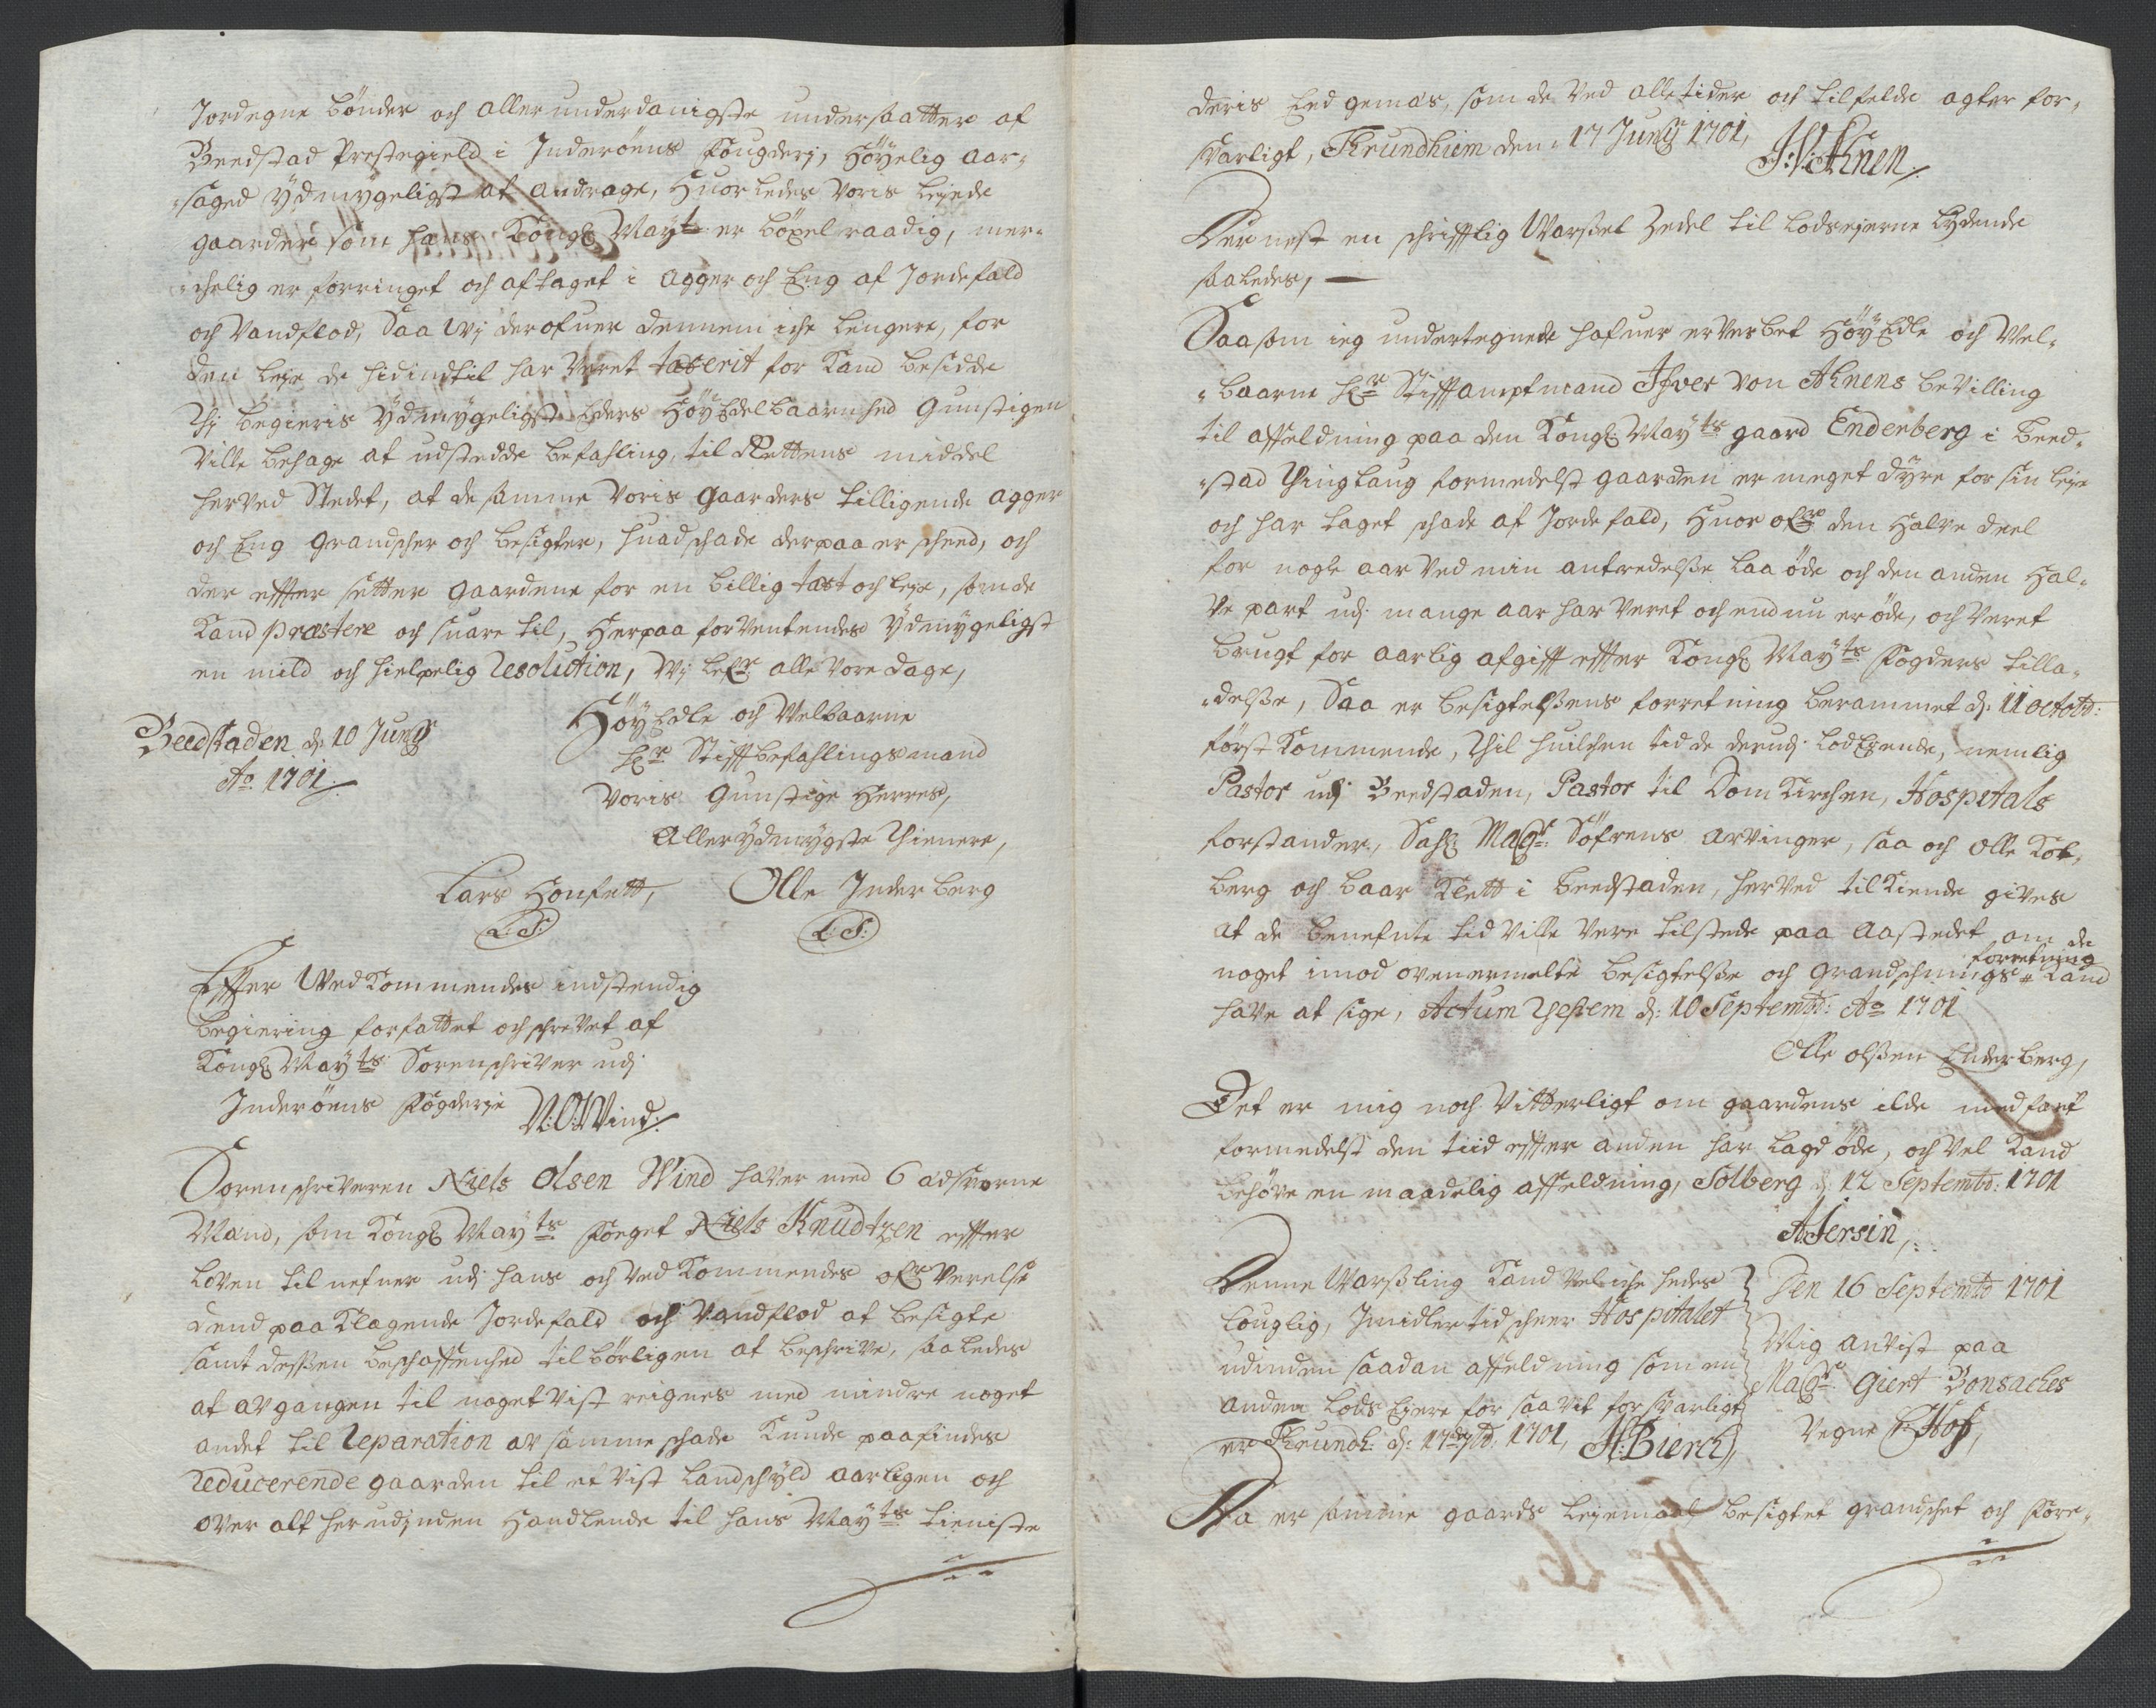 Jordegne bönder och allerunderdanigste undersaatter af
Beedstad Prestegield i Inderöens fougderj, höyelig aar-
saged ydmygeligst at andrage, huorledes voris leyede
gaarder som hans Kongl: Mayt: er böxel raadig, mer-
chelig er forringet och aftaget i agger och Eng af Jordefald
och Vandflod, Saa Wj derofuer dennem iche lengere, for
den leje de hidindtil har veret taxerit for kand besidde
Thj begieris ydmygeligst Eders HöyEdelbaarenhed gunstigen
Ville behage at udstedde befahling, til Rettens middel
herved Stedet, at de samme voris gaarders tilligende agger
och Eng grandscher och besigter, huad schade derpaa er scheed, och
der effter setter gaardene for en billig taxt och leje, som de
kand præstere och suare til, herpaa forventendes ydmygeligst
en mild och hielpelig Resolution, Wj lefr alle vore dage,
Beedstaden d: 10 Junij
Ao: 1701
HöyEdle och Welbaarne
Hr: Stifftbefahlingsmand
Voris gunstige herres,
Allerydmygste thienere,
Lars Honsett, Olle Inderberg
L:S: L:S:
Effter Wedkommendes indstendig
begiering forfattet och schrevet af
Kongl: Mayts: Sorenschriver udj
Inderöens fögderje N:O:Wind
Sorenschriveren Niels Olsen Wind haver med 6 adsvorne
Mænd, som Kongl: Mayts: foget Niels Knudtzen effter
loven til nefner udj hans och vedkommendes ofrværelse
dend paaklagende Jordefald och Vandflod at besigte
samt dessen beschaffenhed tilbörligen at beschrive, saaledes
at avgangen til noget vist reignes med mindre noget
andet til Reparation av samme schade kunde paafindes
reducerende gaarden til et vist landschyld aarligen och
over alt herudjnden handlende til hans Mayts: tieniste
deris Eed gemäs, som de ved alle tider och tilfelde agter for-
svarligt, Thrundhiem den 17 Junij 1701,
J:V:Ahnen
Der nest en schrifftlig Warsel Zedel til lodsejerne lydende
saaledes,
Saasom ieg undertegnede hafuer erverbet HöyEdle och Vel-
baarne Hr: Stifftamptmand Ifver von Ahnens bevilling
til affeldning paa den Kongl: Mayts: gaard Enderberg i beed-
stad thinglaug formedelst gaarden er meget dyre for sin leje
och har taget schade af Jordefald, huor ofr den halve deel
for nogle aar ved min antredelsse laa öde och den anden hal-
ve part udj mange aar har veret och endnu er öde, och veret
brugt for aarlig afgifft effter Kongl: Mayts: fogders tilla-
delsse, Saa er besigtelssens forretning berammet d: 11 octobr:
förstkommende, thil huilchen tid de derudj lodEjende, nemlig
Pastor udj Beedstaden, Pastor til Domkirchen, Hospitals
forstander, Sahl: Magr: Söfrens arvinger, saa och olle Kol-
berg och baar Klett i beedstaden, herved tilkiende gives
at de benefnte tid ville vere tilstede paa aastedet om de
noget imod ovenermelte besigtelsse och grandschnings # kand
forretning
have at sige, Actum d: 10 Septembr: Ao 1701
Olle olssen Enderberg,
Det er mig noch vitterligt om gaardens ilde medfart
formedelst den tiid effter anden har lagd öde, och vel kand
behöve en maadelig affeldning, Solberg d: 12 Septembr: 1701
A:Jersin,
Denne Warssling kand vel iche hedes
louglig, Imidlertid scheer Hospitalet
udinden saadan affeldning som en
anden lods Ejere for saavit forsvarligt
er Thrundh: d: 17 1701, H:Bierch,
Den 16 Septembr 1701
Mig anvist paa
Magr: Giert Bonsaches
Vegne Hof,
Da er samme gaards lejemaal besigtet grandschet och fore-